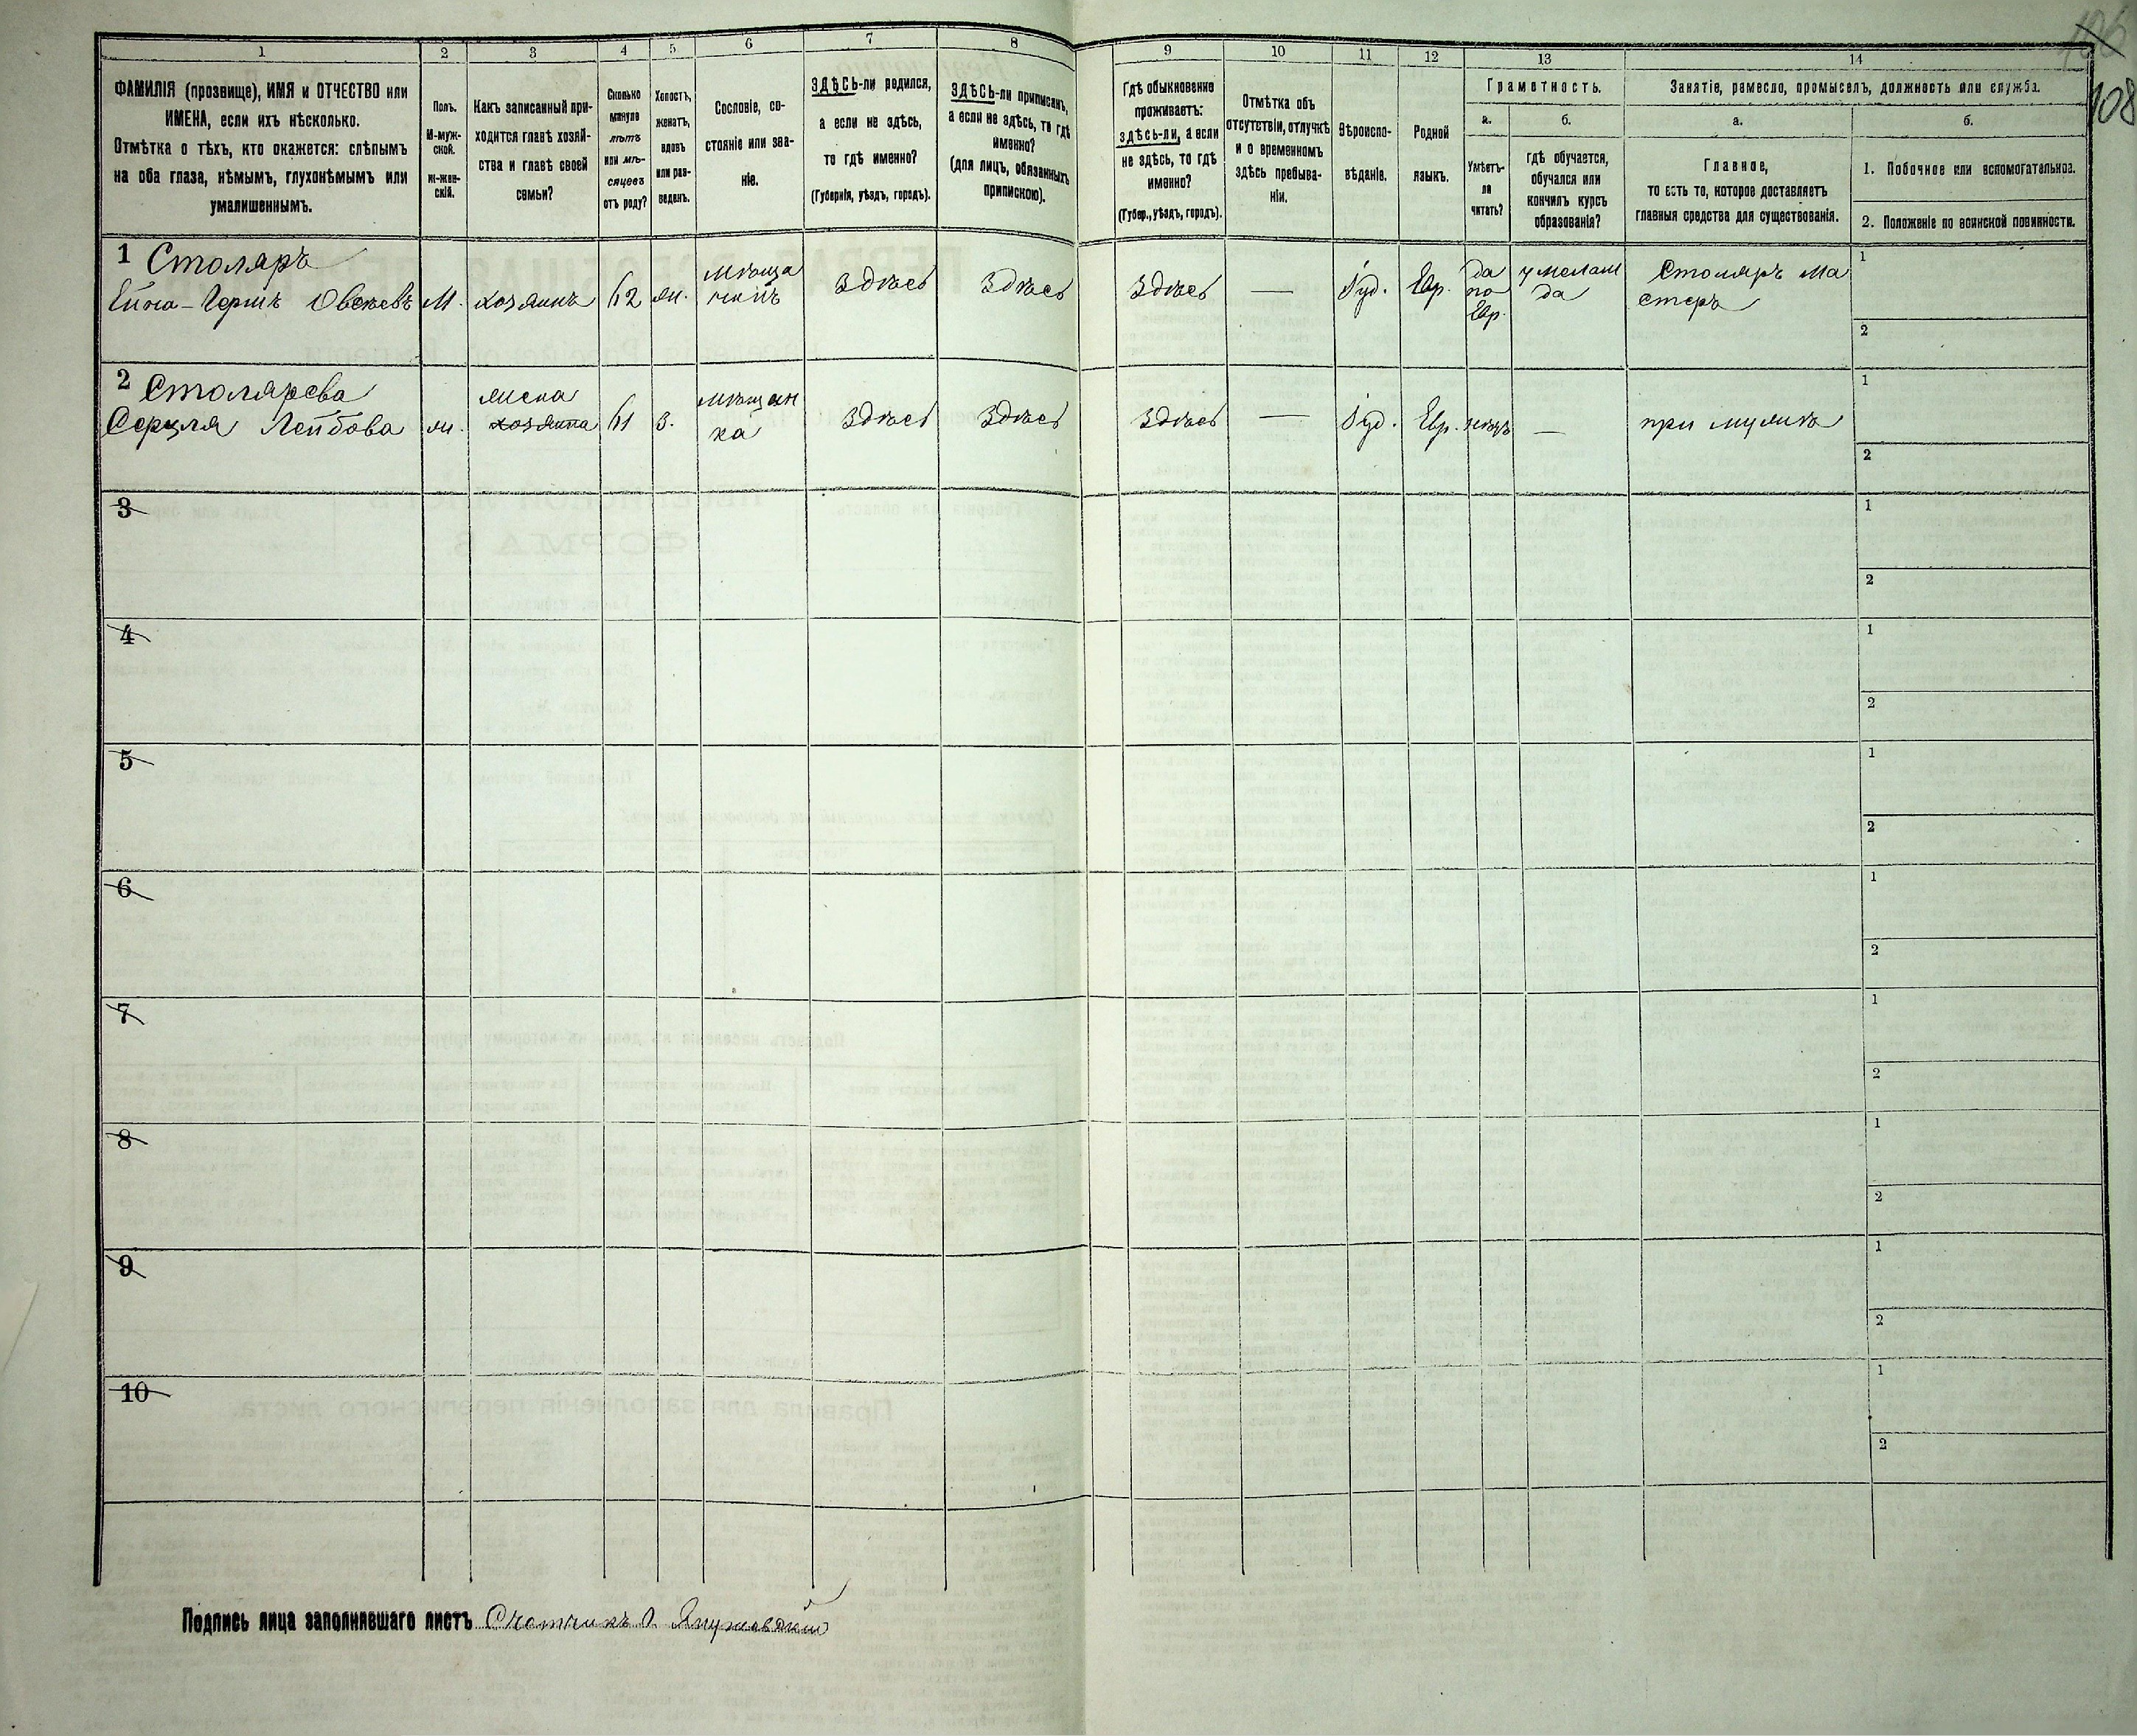 106
108
1
2
3
4
5
6
7
8
9
10
11
12
13
14
ФАМИЛІЯ (прозвище), ИМЯ и ОТЧЕСТВО или
ИМЕНА, если ихъ нѣсколько.
Отмѣтка о тѣхъ, кто окажется: слѣпымъ
на оба глаза, нѣмымъ, глухонѣмымъ или
умалишеннымъ.
Полъ.
М-муж-
ской.
ж-жен-
скій.
Какъ записанный при-
ходится главѣ хозяй-
ства и главѣ своей
семьи?
Сколько
минуло
лѣтъ
или мѣ-
сяцевъ
отъ роду?
Холостъ,
женатъ,
вдовъ
или раз-
веденъ.
Сословіе, со-
стояніе или зва-
ніе.
ЗДѢСЬ-ли родился,
а если не здѣсь,
то гдѣ именно?
(Губернія, уѣздъ, городъ).
ЗДѢСЬ-ли приписанъ,
а если не здѣсь, то гдѣ
именно?
(для лицъ, обязанныхъ
припискою).
Гдѣ обыкновенно
проживаетъ:
здѣсь-ли, а если
не здѣсь, то гдѣ
именно?
(Губер., уѣздъ, городъ).
Отмѣтка объ
отсутствіи, отлучкѣ
и о временномъ
здѣсь пребыва-
ніи.
Вѣроиспо-
вѣданіе.
Родной
языкъ.
Грамотность.
а.
Умѣетъ-
ли
читать?
б.
гдѣ обучается,
обучался или
кончилъ курсъ
образованія?
Занятіе, ремесло, промыселъ, должность или служба.
а.
Главное,
то есть то, которое доставляетъ
главныя средства для существованія.
б.
1. Побочное или вспомогательное.
2. Положеніе по воинской повинности.
1 Столяръ
Гершъ
М.
хозяинъ
62
ж.
мѣща
нинъ
Здѣсь
Здѣсь
Здѣсь
—
Іуд.
Евр.
да
по
Евр.
у мелам
да
Столяръ Ма
стеръ
1
2
2 Столярова
Лейбова
ж.
жена
хозяина
61
З.
мѣщан
ка
Здѣсь
Здѣсь
Здѣсь
—
Іуд.
Евр.
нѣтъ
—
при мужѣ
1
2
3
1
2
4
1
2
5
1
2
6
1
2
7
1
2
8
1
2
9
1
2
10
1
2
Подпись лица заполнившаго листъ Счетчикъ